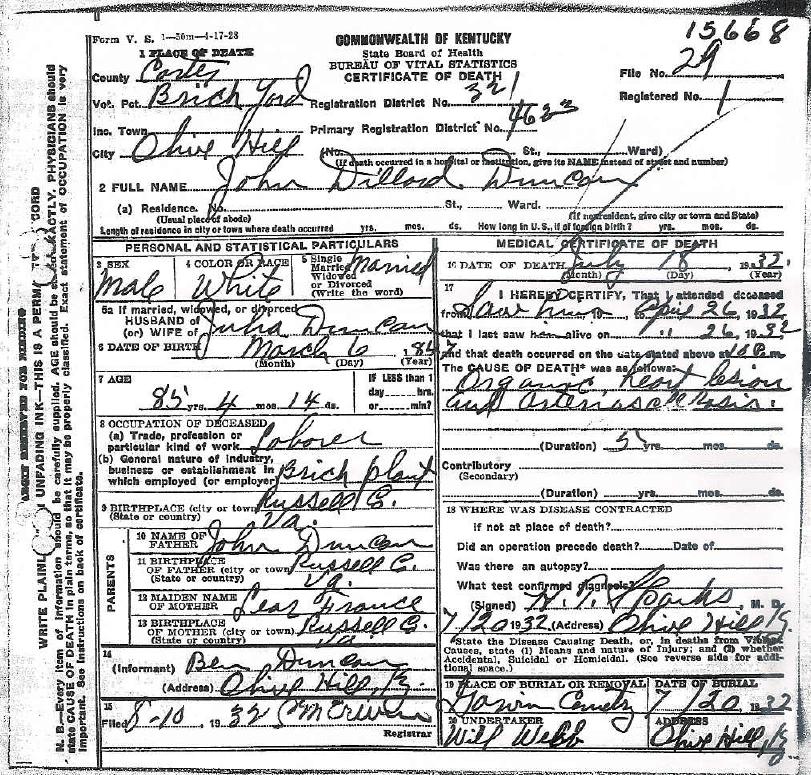 15668
Form V. S. 1—50m—4-17-28
COMMONWEALTH OF KENTUCKY
State Board of Health
BUREAU OF VITAL STATISTICS
CERTIFICATE OF DEATH
1 PLACE OF DEATH
County Carter
File No. 29
Vot. Pct. Brick Yard Registration District No. 321
Registered No. 1
Inc. Town Primary Registration District No. 4623
City Olive Hill (No. St., Ward)
(If death occurred in a hospital or institution, give its NAME instead of street and number)
2 FULL NAME John Dillard Duncan
(a) Residence. No. St., Ward.
(Usual place of abode) (If nonresident, give city or town and State)
Length of residence in city or town where death occurred yrs. mos. ds. How long in U.S., if of foreign birth? yrs. mos. ds.
PERSONAL AND STATISTICAL PARTICULARS
3 SEX Male
4 COLOR OR RACE White
5 Single Married
Married
Widowed
or Divorced
(Write the word)
5a If married, widowed, or divorced
HUSBAND OF Julia Duncan
(or) WIFE of
6 DATE OF BIRTH March 6 184
(Month) (Day) (Year)
7 AGE
85 yrs. 4 mos. 14 ds.
IF LESS than 1
day hrs.
or min?
8 OCCUPATION OF DECEASED
(a) Trade, profession or
particular kind of work Laborer
(b) General nature of industry,
business or establishment in
which employed (or employer) Brick plant
9 BIRTHPLACE (city or town) Russell C.
(State or country) Va.
PARENTS
10 NAME OF
FATHER John Duncan
11 BIRTHPLACE
OF FATHER (city or town) Russell C.
(State or country) Va.
12 MAIDEN NAME
OF MOTHER Lear France
13 BIRTHPLACE
OF MOTHER (city or town) Russell C.
(State or country) Va
14
(Informant) Ben Duncan
(Address) Olive Hill, Ky.
15
Filed 8-10, 1932
Registrar
MEDICAL CERTIFICATE OF DEATH
16 DATE OF DEATH July 18, 1932
(Month) (Day) (Year)
17
I HEREBY CERTIFY, That I attended deceased
from Saw him to April 26 1932
that I last saw him alive on " 26, 1932
and that death occurred on the date stated above at 10 P.m.
The CAUSE OF DEATH* was as follows:
Organic heart lesion
and
(Duration) 5 yrs. mos. ds.
Contributory
(Secondary)
(Duration) yrs. mos. ds.
18 WHERE WAS DISEASE CONTRACTED
if not at place of death?
Did an operation precede death? Date of
Was there an autopsy?
What test confirmed diagnosis?
(Signed) H. T. Sparks M. D.
7/20 1932 (Address) Olive Hill Ky.
*State the Disease Causing Death, or, in deaths from Violent
Causes, state (1) Means and nature of Injury; and (2) whether
Accidental, Suicidal or Homicidal. (See reverse side for addi-
tional space.)
19 PLACE OF BURIAL OR REMOVAL
Cemetry
DATE OF BURIAL
7/20 1932
20 UNDERTAKER
Will Webb
ADDRESS
Olive Hill, Ky
MARGIN RESERVED FOR BINDING
WRITE PLAINLY UNFADING INK—THIS IS A PERMA CORD
N. B.—Every item of information should be carefully supplied. AGE should be stated EXACTLY. PHYSICIANS should
state CAUSE OF DEATH in plain terms, so that it may be properly classified. Exact statement of OCCUPATION is very
important. See instructions on back of certificate.